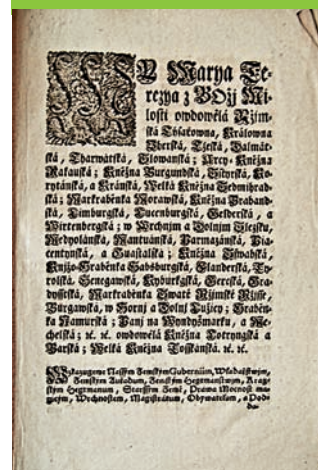 MY Marya Te-
rezya z Božj Mi-
losti owdowělá Řjm-
ská Cýsařowna, Králowna
Vherská, Česká, Dalmat-
ská, Charwatská, Slowanská; Arcy-Kněžna
Rakauská; Kněžna Burgundská, Sstyrská, Ko-
rytánská, a Kránská, Welká Kněžna Sedmihrad-
ská; Markraběnka Morawská, Kněžna Braband-
ská, Limburgská, Lucenburgská, Gelderská, a
Wirtenbergská; w Wrchnjm a Dolnjm Slezsku,
Medyolánská, Mantuánská, Parmazánská, Pia-
centynská, a Guastalská; Kněžna Sswábská,
Knjžo-Hraběnka Habsburgská, Flanderská, Ty-
rolská, Henegawská, Kyburgská, Gorcská, Gra-
dysstská, Markraběnka Swaté Řjmské Ržjsse,
Burgawská, w Hornj a Dolnj Lužicy; Hraběn-
ka Namurská; Panj na Wyndyšmarku, a Me-
chelská; ꝛc. ꝛc. owdowělá Kněžna Lotryngská a
Barská; Welká Kněžna Tosskánská. ꝛc. ꝛc.
Wzkazugeme Nassým Zemským Guberniím, Wladařstwjm,
Zemským Auřadum, Zemským Hegtmanstwjm, Krag-
ským Hegtmanum, Starssým Země, Práwa Mocnost ma-
gjcým, Wrchnostem, Magistrátum, Obywatelum, a Pod-
da-